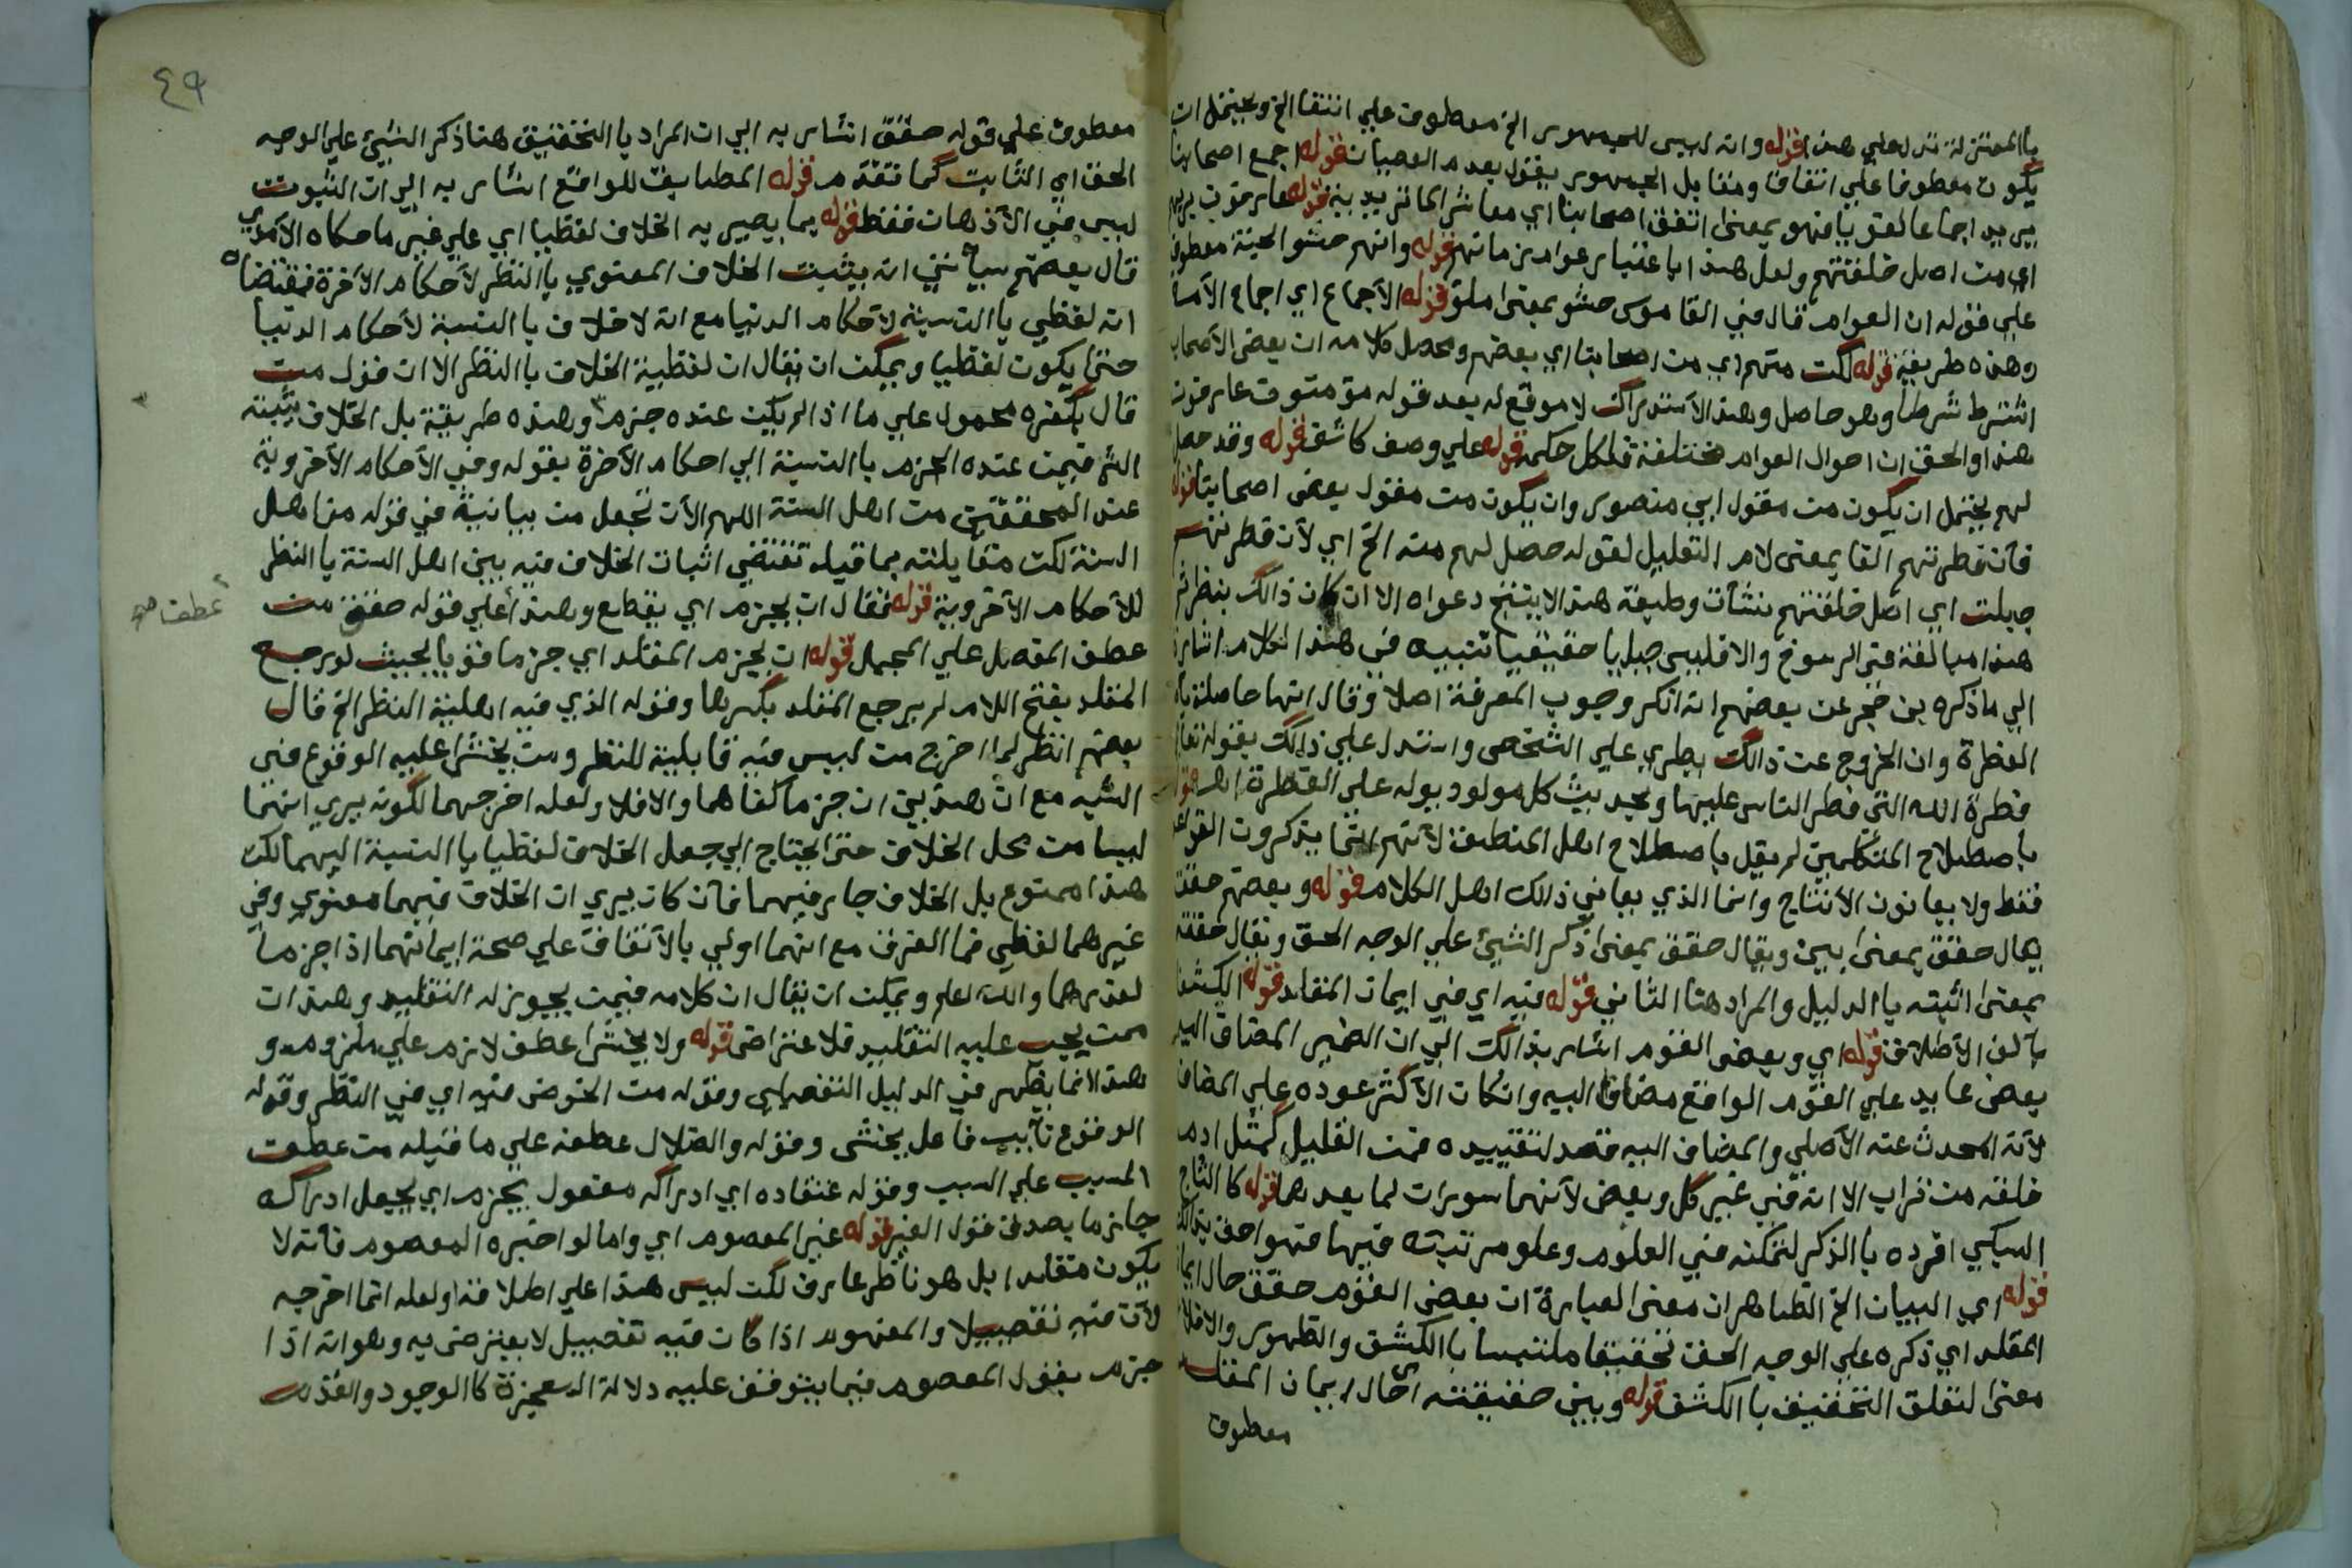 يا المعتزلة تدل علي هذا قوله وانه ليس للجمهور الخ معطوف علي انتفا الخ ويحتمل ان
يكون معطوفا علي اتفاقا ومقابل الجمهور يقول بعدم العصيان قوله اجمع اصحابنا
اجماعا لغويا فهو بمعني اتفق اصحابنا اي معاشر الماتريدية قوله عارفون بربهم
اي من اصل خلقتهم ولعل هذا باعتبار عوام زمانهم قوله وانهم حشو الجنة معطوف
علي قوله ان العوام قال في القاموس حشو بمعني املؤ قوله الاجماع اي اجماع الاصحاب
وهذه طريقة قوله لكن منهم اي من اصحابنا اي بعضهم ومحصل كلامه ان بعض الاصحاب
اشترط شرطا وهو حاصل وهذا الاستدراك لا موقع له بعد قوله مؤمنون عارفون
هذا والحق ان احوال العوام مختلفة فلكل حكمه قوله علي وصف كاشف قوله وقد حصل
لهم يحتمل ان يكون من مقول ابي منصور وان يكون من مقول بعض اصحابنا قوله
فان فطرتهم الفا بمعني لام التعليل لقوله حصل لهم منه الخ اي لان فطرتهم
جبلت اي اصل خلقتهم بنشأت وطبيعة هذا لا ينتج دعواه الا ان كان ذالك بنظر ثم
هذا مبالغة في الرسوخ والا فليس جبليا حقيقيا تنبيه في هذا الكلام اشارة
الي ما ذكره بن حجر عن بعضهم انه انكر وجوب المعرفة اصلا وقال انها حاصلة باصل
الفطرة وان الخروج عن ذالك يطري علي الشخص واستدل علي ذالك بقوله تعالي
فطرة الله التي فطر الناس عليها وبحديث كل مولود يولد علي الفطرة اهـ قوله
باصطلاح المتكلمين لم يقل باصطلاح اهل المنطق لانهم انما يذكرون القواعد
فقط ولا يعانون الانتاج وانما الذي يعاني ذالك اهل الكلام قوله وبعضهم حقق
يقال حقق بمعني بين ويقال حقق بمعني ذكر الشيئ علي الوجه الحق ويقال حققه
بمعني اثبته يا الدليل والمراد هنا الثاني قوله فيه اي في ايمان المقلد قوله الكشفا
بالف الاطلاق قوله اي وبعض القوم اشار بذالك الي ان الضمير المضاف اليه
بعض عايد علي القوم الواقع مضافا اليه وان كان الاكثر عوده علي المضاف
لانه المحدث عنه الاصلي والمضاف اليه قصد لتقييده فمن القليل كمثل ادم
خلقه من تراب الا انه في غير كل وبعض لانهما سوران لما بعدهما قوله كا التاج
السبكي افرده يا الذكر لتمكنه في العلوم وعلو مرتبته فيها فهو احق بذالك
قوله اي البيان الخ الظاهر ان معني العبارة ان بعض القوم حقق حال ايمان
المقلد اي ذكره علي الوجه الحق تحقيقا ملتبسا يا الكشف والظهور والا فلا
معني لتعلق التحقيق يا الكشف قوله وبين حقيقته اي حال ايمان المقلد
معطوف
٤٩
معطوف علي قوله حقق اشار به الي ان المراد يا التحقيق هنا ذكر الشيئ علي الوجه
الحق اي الثابت كما تقدم قوله المطابق للواقع اشار به الي ان الثبوت
ليس في الاذهان فقط قوله بما يصير به الخلاف لفظيا اي علي غير ما حكاه الآمدي
قال بعضهم سيأتي انه يثبت الخلاف المعنوي يا النظر لاحكام الاخرة فمقتضاه
انه لفظي يا النسبة لاحكام الدنيا مع انه لا خلاف يا النسبة لاحكام الدنيا
حتي يكون لفظيا ويمكن ان يقال ان لفظية الخلاف يا النظر الا ان قول من
قال بكفره محمول علي ما اذا لم يكن عنده جزم وهذه طريقة بل الخلاف يثبته
الثم فيمن عنده الجزم يا النسبة الي احكام الاخرة بقوله وفي الاحكام الاخروية
عند المحققين من اهل السنة اللهم الا ان تجعل من بيانية في قوله من اهل
السنة لكن مقابلته بما قبله تقتضي اثبات الخلاف فيه بين اهل السنة يا النظر
للاحكام الاخروية قوله فقال ان يجزم اي يقطع وهذا علي قوله حقق من
عطف
عطف المفصل علي المجمل قوله ان يجزم المقلد اي جزما قويا بحيث لو رجع
المقلد بفتح اللام لم يرجع المقلد بكسرها وقوله الذي فيه اهلية النظر الخ قال
بعضهم انظر لم اخرج من ليس فيه قابلية للنظر ومن يخشي عليه الوقوع في
الشبه مع ان هذين ان جزما كفاهما والا فلا ولعله اخرجهما لكونه يري انهما
ليسا من محل الخلاف حتي يحتاج الي جعل الخلاف لفظيا يا النسبة اليهما لكن
هذا ممنوع بل الخلاف جار فيهما فان كان يري ان الخلاف فيهما معنوي وفي
غيرهما لفظي فما الفرق مع انهما اولي بالاتفاق علي صحة ايمانهما اذا جزما
لعذرهما والله اعلم ويمكن ان يقال ان كلامه فيمن يجوز له التقليد وهذان
ممن يجب عليه التقليد فلا اعتراض قوله ولا يخشي عطف لازم علي ملزوم و
هذا انما يظهر في الدليل التفصيلي وقوله من الخوض فيه اي في النظر وقوله
الوقوع نايب فاعل يخشي وقوله والضلال عطفه علي ما قبله من عطف
المسبب علي السبب وقوله اعتقاده اي ادراكه مفعول يجزم اي يجعل ادراكه
جازما بصدق قول الغير قوله غير المعصوم اي واما لو اخبره المعصوم فانه لا
يكون مقلدا بل هو ناظر عارف لكن ليس هذا علي اطلاقه ولعله انما اخرجه
لان فيه تفصيلا والمفهوم اذا كان فيه تفصيل لا يعترض به وهو انه اذا
جزم بقول المعصوم فيما يتوقف عليه دلالة المعجزة كا الوجود والقدم